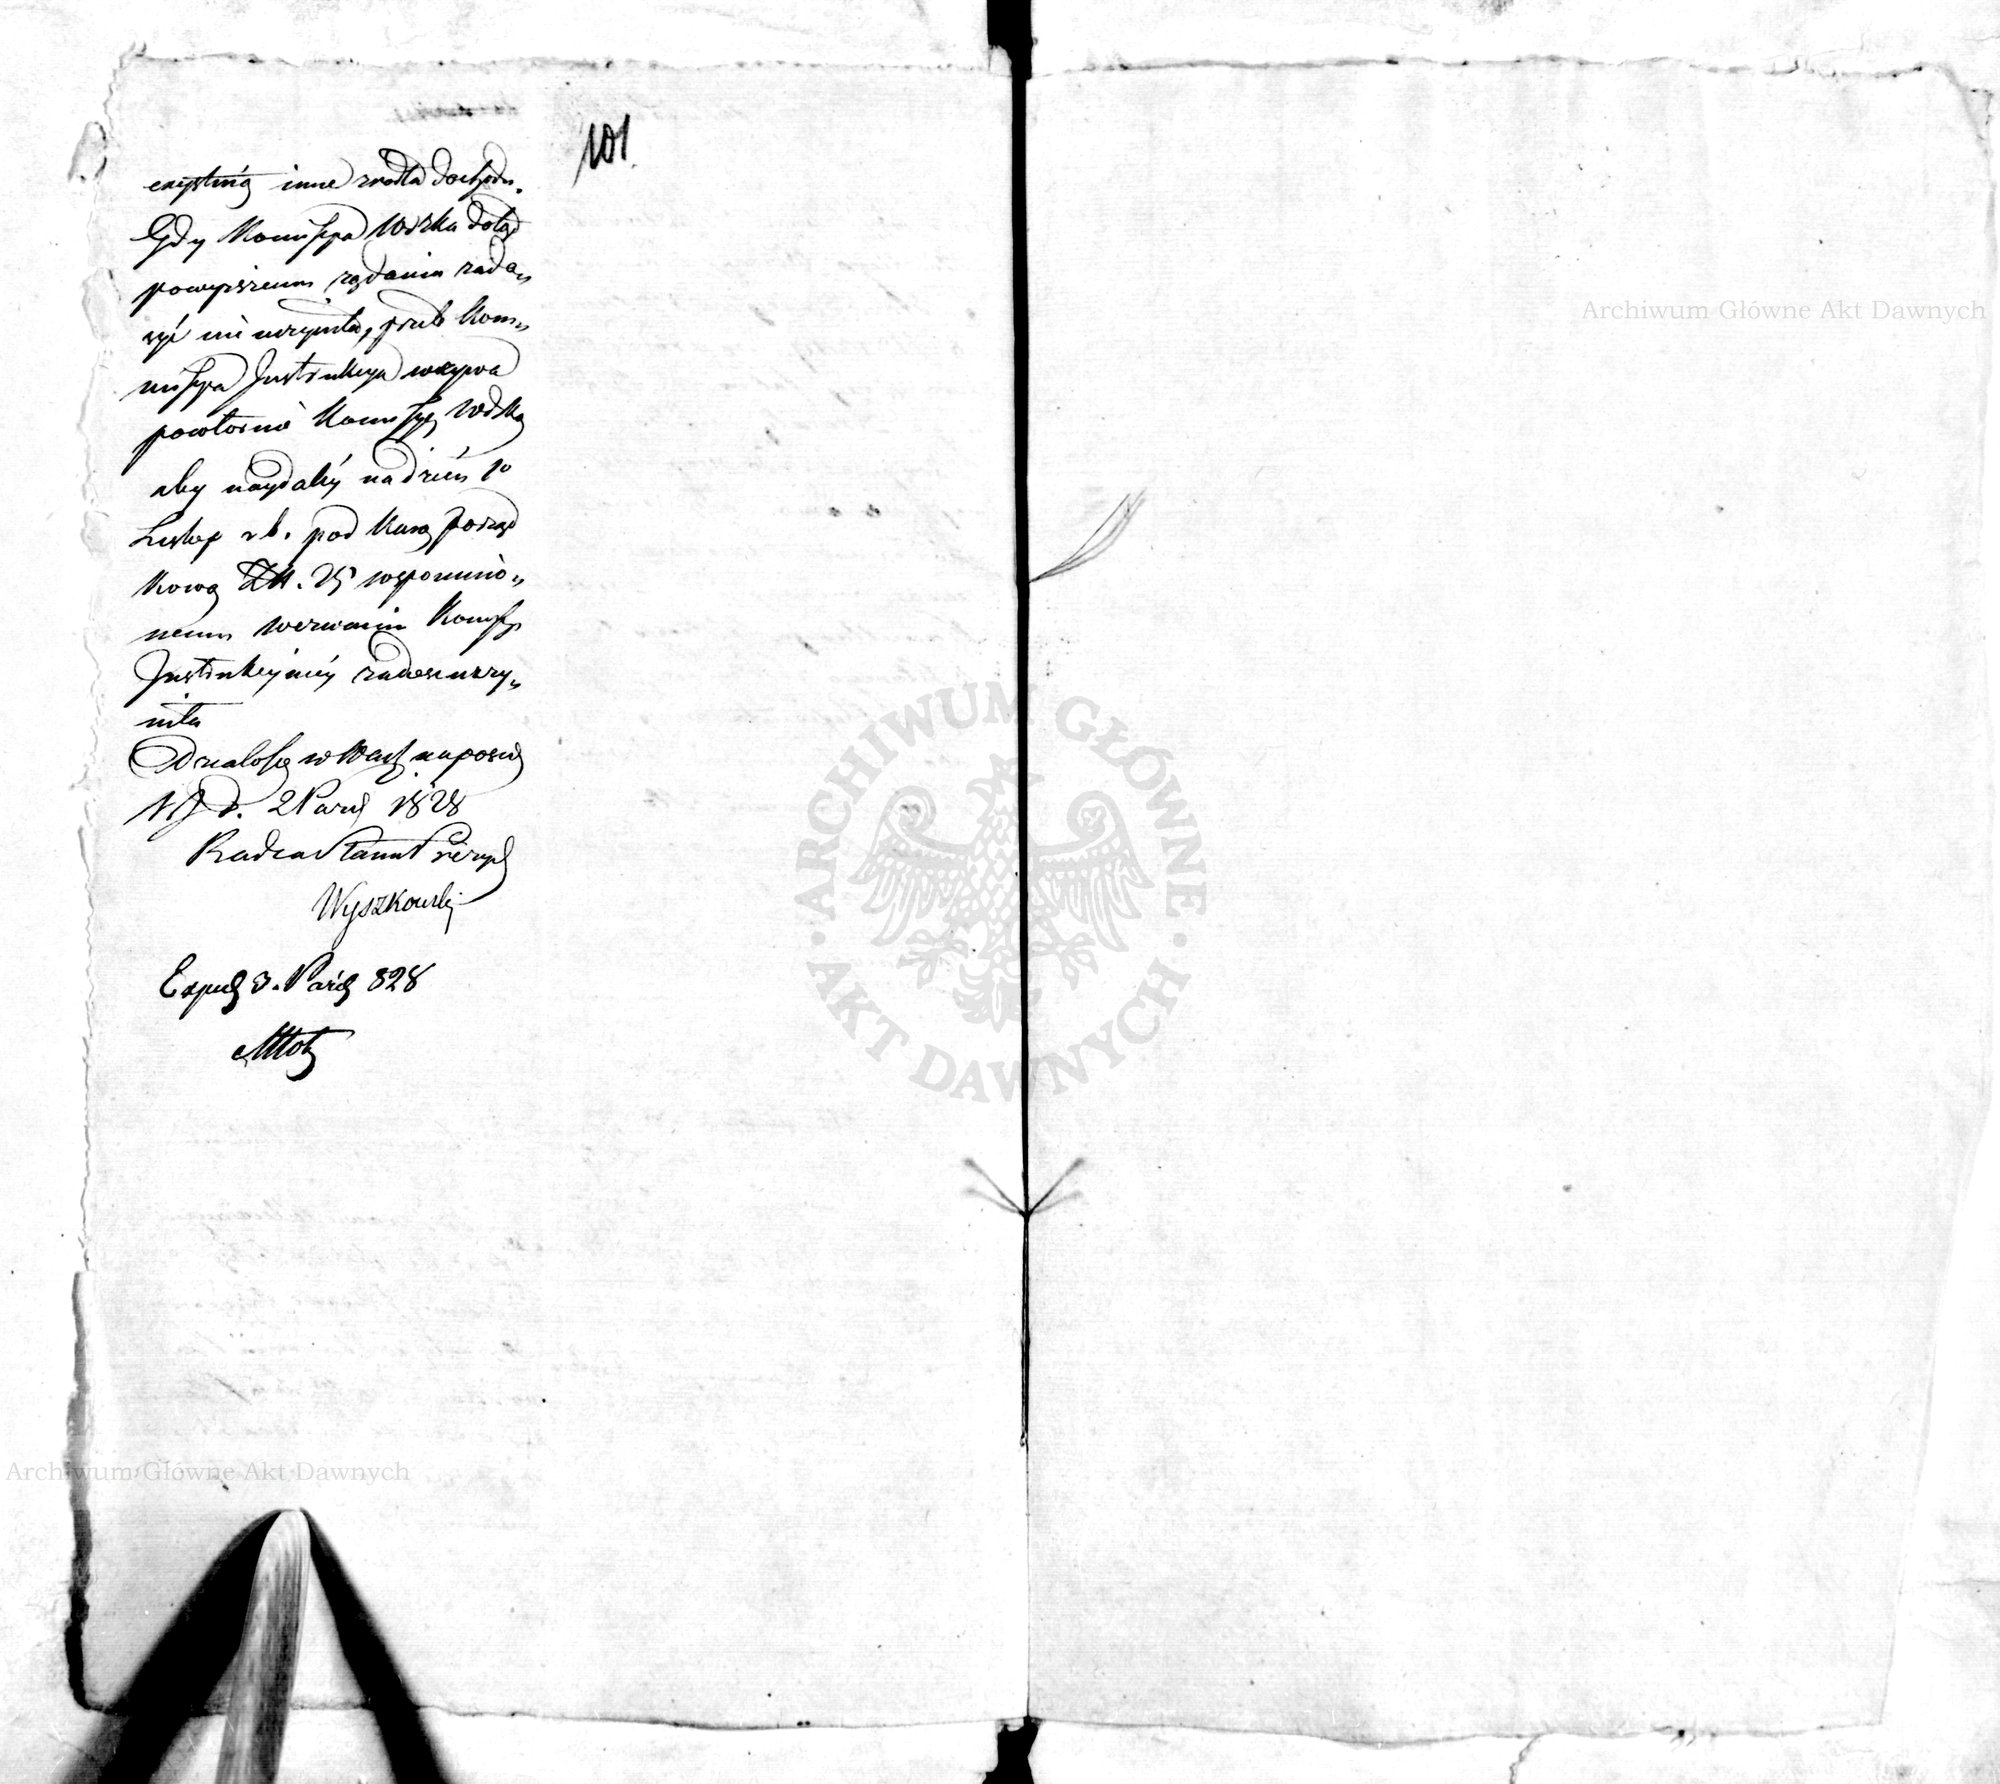 101.
exystuią inne zrodła dochodu.
Gdy Kommissya Wdzka dotąd
powyższemu rządaniu zado„
syć nie uczyniła, przeto Kom„
missya Instrukcyja wzywa
powtornie Kommissyę Wdzką
aby naydaley na dzień 10
Listop r. b. pod karą porząd
kową wspomnio„
nemu wezwaniu Kommissyi
Instrukcyiney zadosyc uczy„
niła
Działo się w na posiedz
d. 2 Pazd 1828
Radca Stanu Prezyd
Wyszkowski
Exped 3. Paźdz 828
Archiwum Główne Akt Dawnych
ARCHIWUM GŁÓWNE
AKT DAWNYCH
Archiwum Główne Akt Dawnych